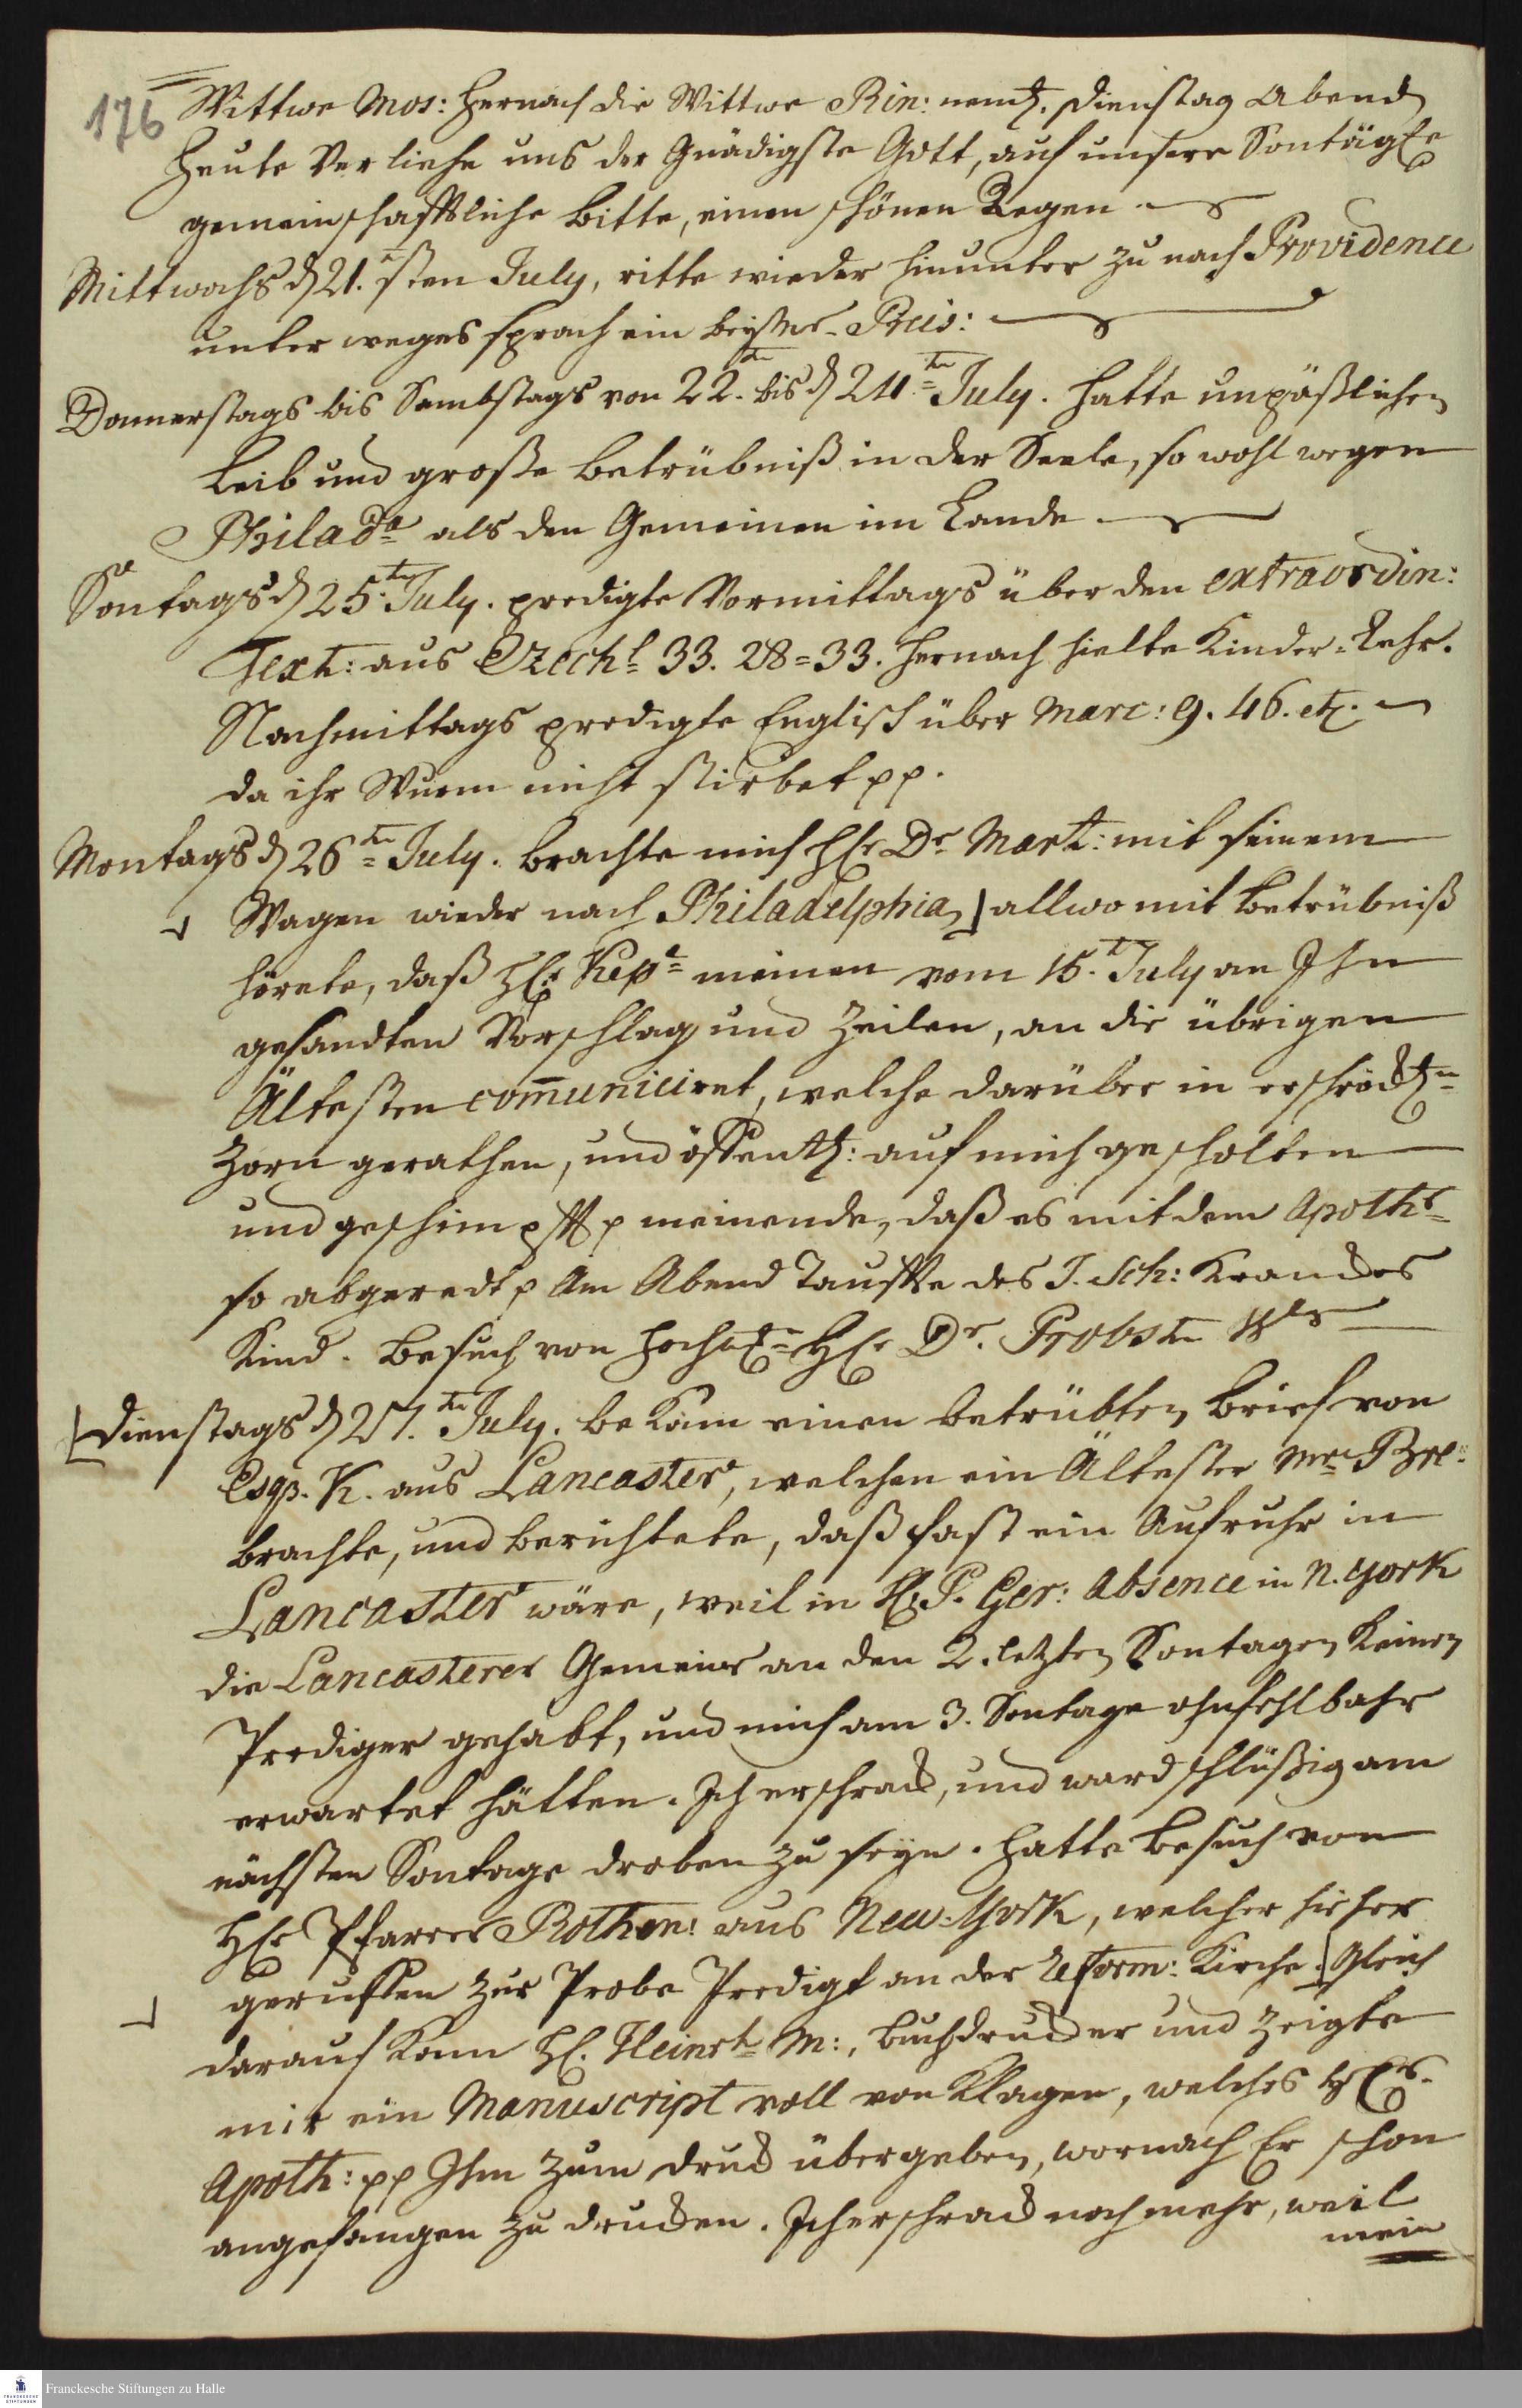 176
Wittwe Mos: hernach die Wittwe Rin: neml. Dienstag Abend
heute verliehe uns der Gnädigste Gott, auf unsere Sontägle
gemeinschafftliche Bitte, einen schönen Regen.
Mittwochs d 21.sten July, ritte wieder hinunter zu nach Providence
unterweges sprach ein bey Mr. Preis:
Donnerstags bis Sambstags von 22.ten bis d 24.ten July. hatte unpäßlichen
Leib und große Betrübniß in der Seele, so wohl wegen
Philada als den Gemeinen im Lande.
Sontags d 25.ten July. predigte Vormittags über den extraordin:
Text: aus Ezechl 33. 28=33. hernach hielte Kinder-Lehr.
Nachmittags predigte Englisch über Marc: 9. 46. etc.
da ihr Wurm nicht stirbet pp.
Montags d 26ten July. brachte mich Hr Dr Mart: mit seinem
Wagen wieder nach Philadelphia, allwo mit Betrübniß
hörete, daß Hr Kepl meinen vom 15.t July an Ihn
gesandten Vorschlag und Zeilen, an die übrigen
Ältesten communiciret, welche darüber in erschröckln
Zorn gerathen, und öffentl: auf mich gescholten
und geschimpfft p meinende, daß es mit dem Apothr
so abgeredt p Am Abend Tauffte des J. Sch: Kranckes
Kind. Besuch von Hr Dr. Probst
Dienstags d 27.ten July. bekam einen betrübten Brief von
Esqr. K. aus Lancaster, welchen ein Ältester Mr
brachte, und berichtete, daß fast ein Aufruhr in
Lancaster wäre, weil in H. P. Ger: Absence in N. York
die Lancasterer Gemeine an den 2. letzten Sontagen keinen
Prediger gehabt, und mich am 3. Sontage ohnfehlbahr
erwartet hätten. Ich erschrack, und ward schlüßig am
nächsten Sontage droben zu seyn. hatte Besuch von
Hr Pfarrer Rothen: aus New-York, welcher hieher
geruffen zur Probe Predigt an der Reform: Kirche. Gleich
darauf kam H. Heinrh M:, Buchdrucker und zeigte
mir ein Manuscript voll von Klagen, welches
Apoth: pp Ihm zum druck übergeben, wornach Er schon
angefangen zu drucken. Ich erschrack noch mehr, weil
mein
Franckesche Stiftungen zu Halle